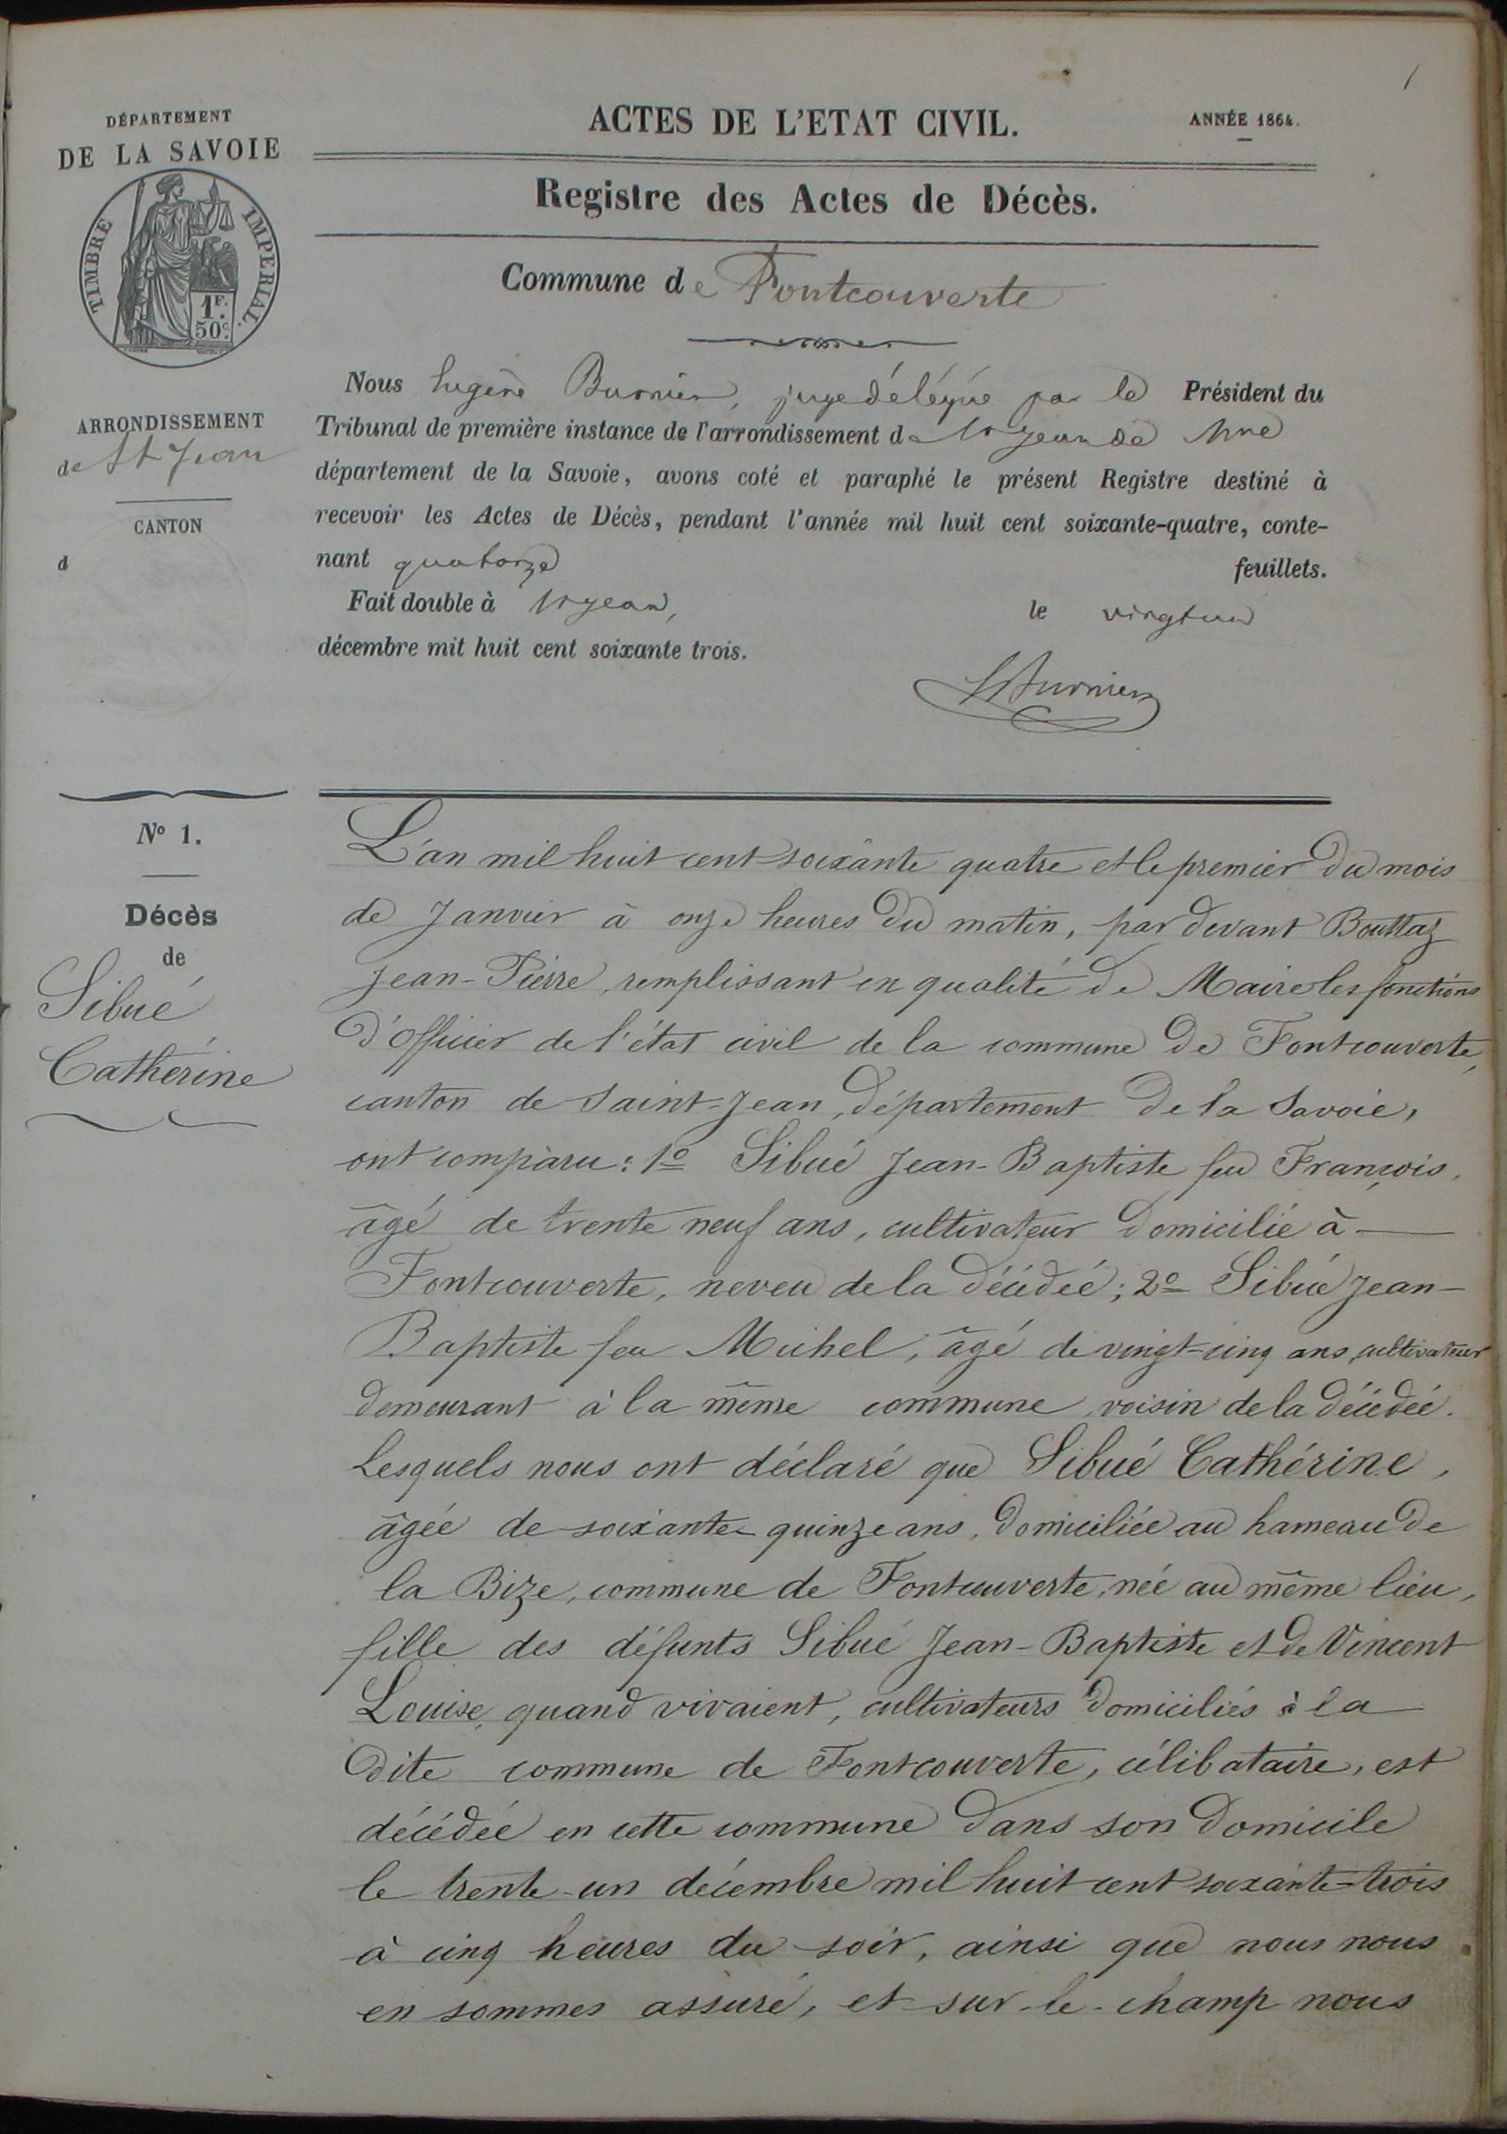 1
DÉPARTEMENT
DE LA SAVOIE
TIMBRE IMPERIAL.
1F.
50c.
ARRONDISSEMENT
de St Jean
CANTON
d
ACTES DE L'ETAT CIVIL.
ANNÉE 1864.
Registre des Actes de Décès.
Commune de Fontcouverte
Nous Eugène Burnier, juge délégué par le Président du
Tribunal de première instance de l'arrondissement de St Jean de Mne
département de la Savoie, avons coté et paraphé le présent Registre destiné à
recevoir les Actes de Décès, pendant l'année mil huit cent soixante-quatre, conte-
nant quatorze feuillets.
Fait double à St Jean, le vingt un
décembre mit huit cent soixante trois.
Burnier
No 1.
Décès
de
Sibué
Cathérine
L'an mil huit cent soixante quatre et le premier du mois
de Janvier à onze heures du matin, par devant Bouttaz
Jean-Pierre, remplissant en qualité de Maire les fonctions
d'Officier de l'état civil de la commune de Fontcouverte,
canton de Saint-Jean, département de la Savoie,
ont comparu : 1o Sibué Jean-Baptiste feu François,
âgé de trente neuf ans, cultivateur domicilié à —
Fontcouverte, neveu de la décédée ; 2o Sibué Jean-
Baptiste feu Michel, âgé de vingt-cinq ans, cultivateur
demeurant à la même commune, voisin de la décédée.
Lesquels nous ont déclaré que Sibué Cathérine,
âgée de soixante quinze ans, domiciliée au hameau de
la Bize, commune de Fontcouverte, née au même lieu,
fille des défunts Sibué Jean-Baptiste et de Vincent
Louise, quand vivaient, cultivateurs domiciliés à la
dite commune de Fontcouverte, célibataire, est
décédée en cette commune dans son domicile
le trente-un décembre mil huit cent soixante-trois
à cinq heures du soir, ainsi que nous nous
en sommes assuré, et sur-le-champ nous